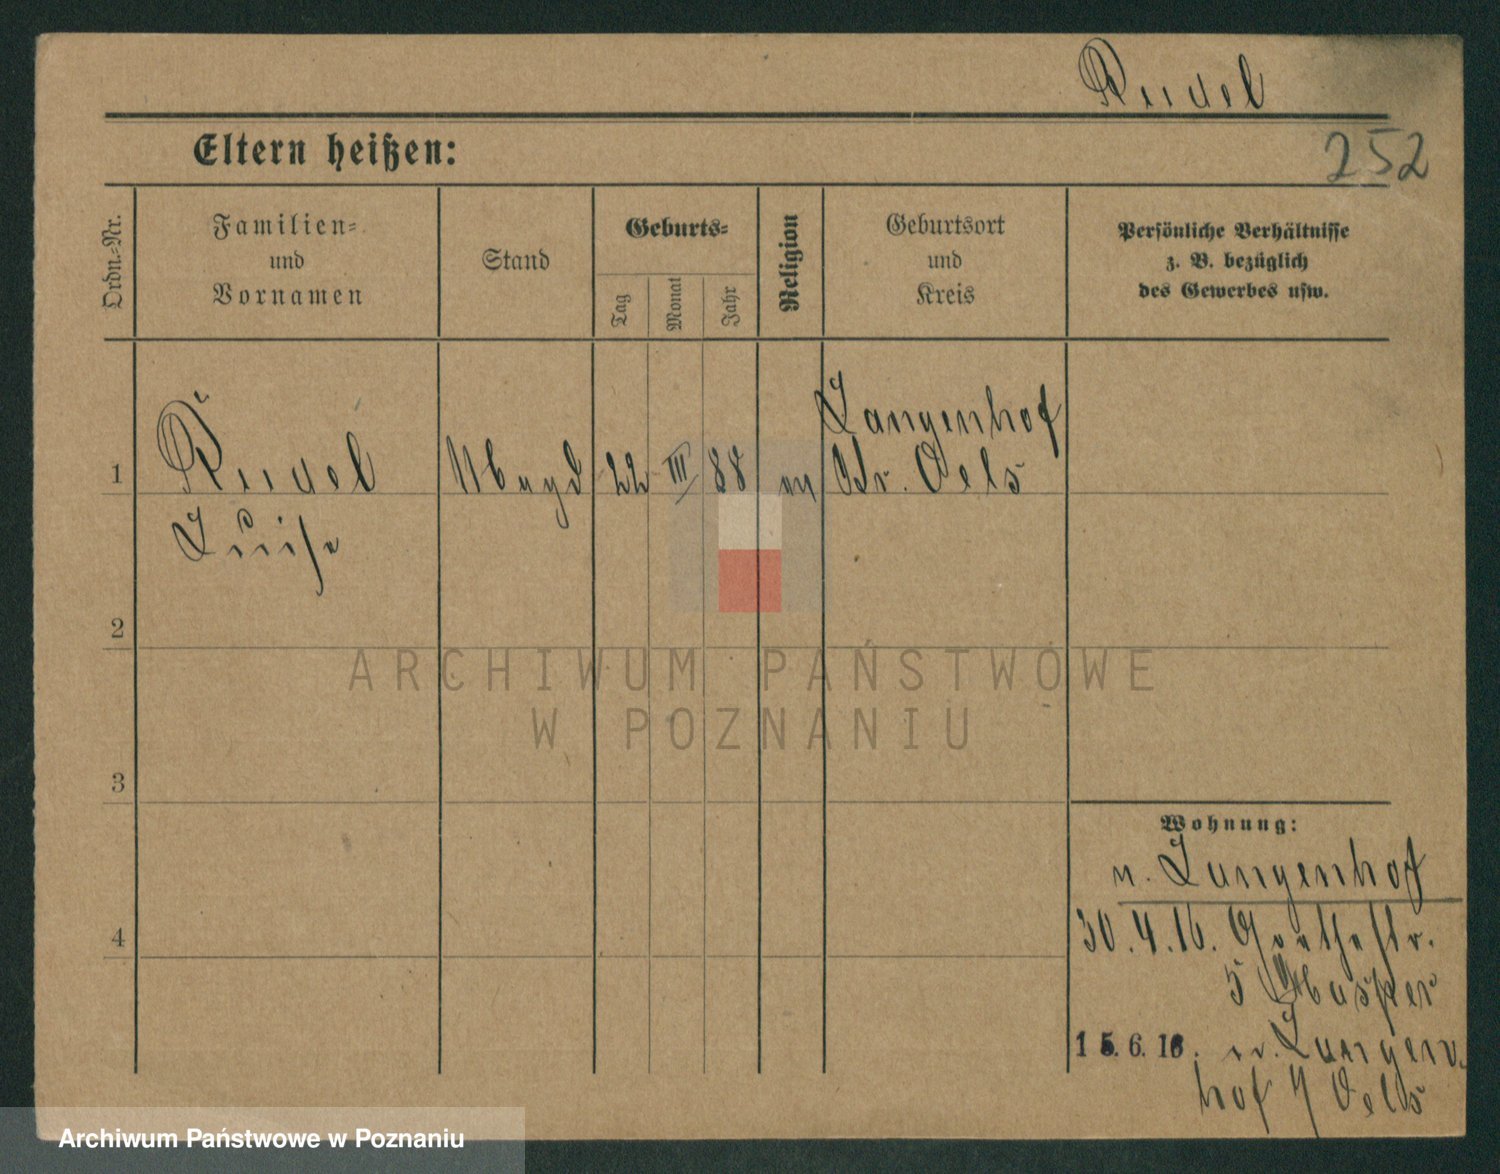 Riedel
252
Eltern heißen:
Ordn.-Nr.
Familien-
und
Vornamen
Stand
Geburts-
Tag
Monat
Jahr
Religion
Geburtsort
und
Kreis
Persönliche Verhältnisse
z. B. bezüglich
des Gewerbes usw.
1
Riedel
Luise
Magd
22
III
88
Langenhof
Kr. Oels
2
3
4
ARCHIWUM PAŃSTWOWE
W POZNANIU
Wohnung:
n. Langenhof
30.4.16. Goethestr.
5
15.6.16. n. Langen-
hof / Oels
Archiwum Państwowe w Poznaniu